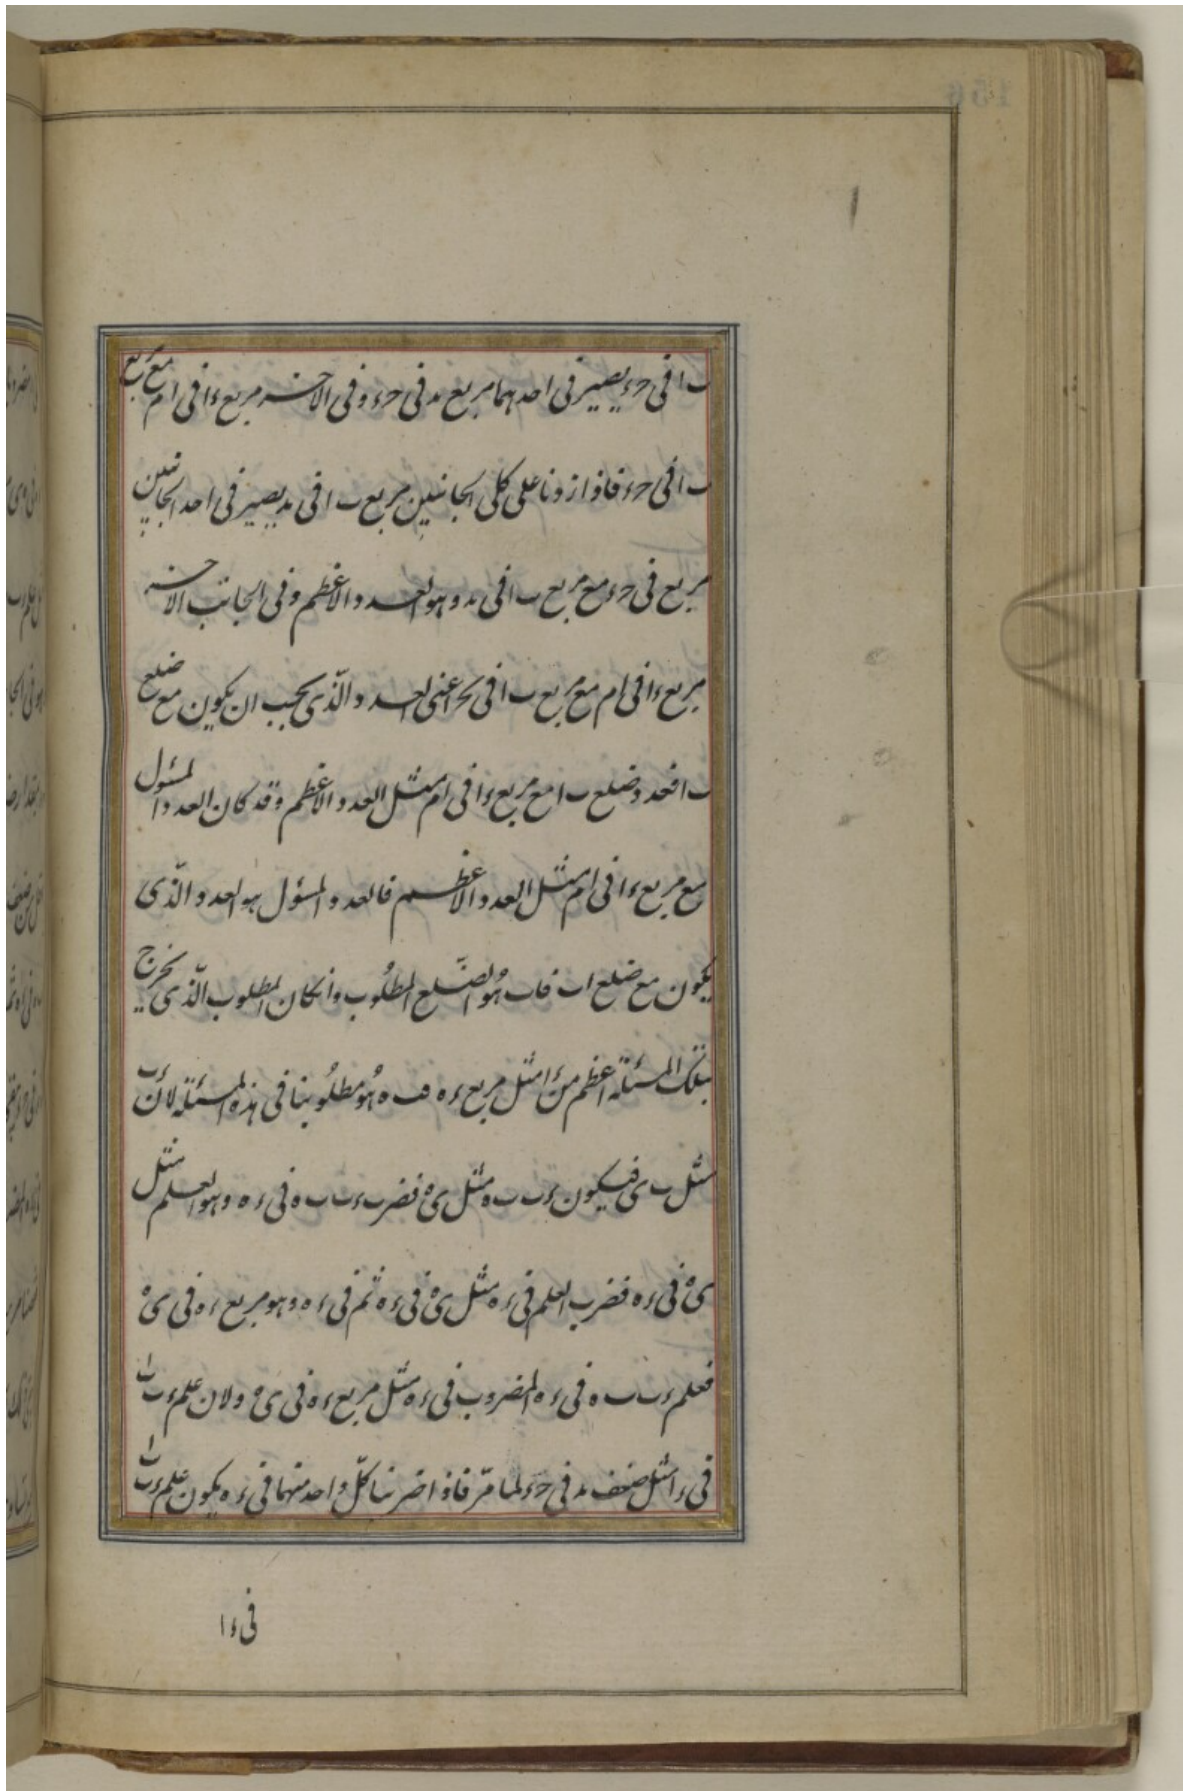 ب ا فی حء یصیر فی احدهما مربع مد فی حء و فی الاخر مربع ءا فی ام مع مربع
ب ا فی حء فاذا زدنا علی کلی الجانبین مربع ب ا فی مد یصیر فی احد الجانبین
مربع فی حء مع مربع ب ا فی مد و هو العدد الاعظم و فی الجانب الاخر
مربع ءا فی ام مع مربع ب ا فی اعنی العدد الّذی یجب ان یکون مع ضلع
ب ا فعدد ضلع ب ا مع مربع ءا فی ام مثل العدد الاعظم و قد کان العدد المسئول
مع مربع ءا فی ام مثل العدد الاعظم فالعدد المسئول هو العدد الّذی
یکون مع ضلع اب فاب هُو الضّلع المطلُوب و انکان المطلوب الّذی یخرج
بتلک المسئلة اعظم من ءا مثل مربع ءه فب ه هُو مطلُوبنا فی هذه المسئلة لان ءب
مثل ب ی فیکون ءب ب ه مثل ی ه فضرب ءب ب ه فی ءه و هو العلم مثل
ی ه فی ءه فضرب العلم فی ءه مثل ی ه فی ءه ثم فی ءه و هو مربع ءه فی ی ه
فعلم ءب ب ه فی ءه المضروب فی ءه مثل مربع ءه فی ی ه و لان علم ءب ب ا
فی ءا مثل ضعف مد فی حء لما مرّ فاذا ضربنا کلّ واحد منهما فی ءه یکون علم ءب ب ا
فی ءا